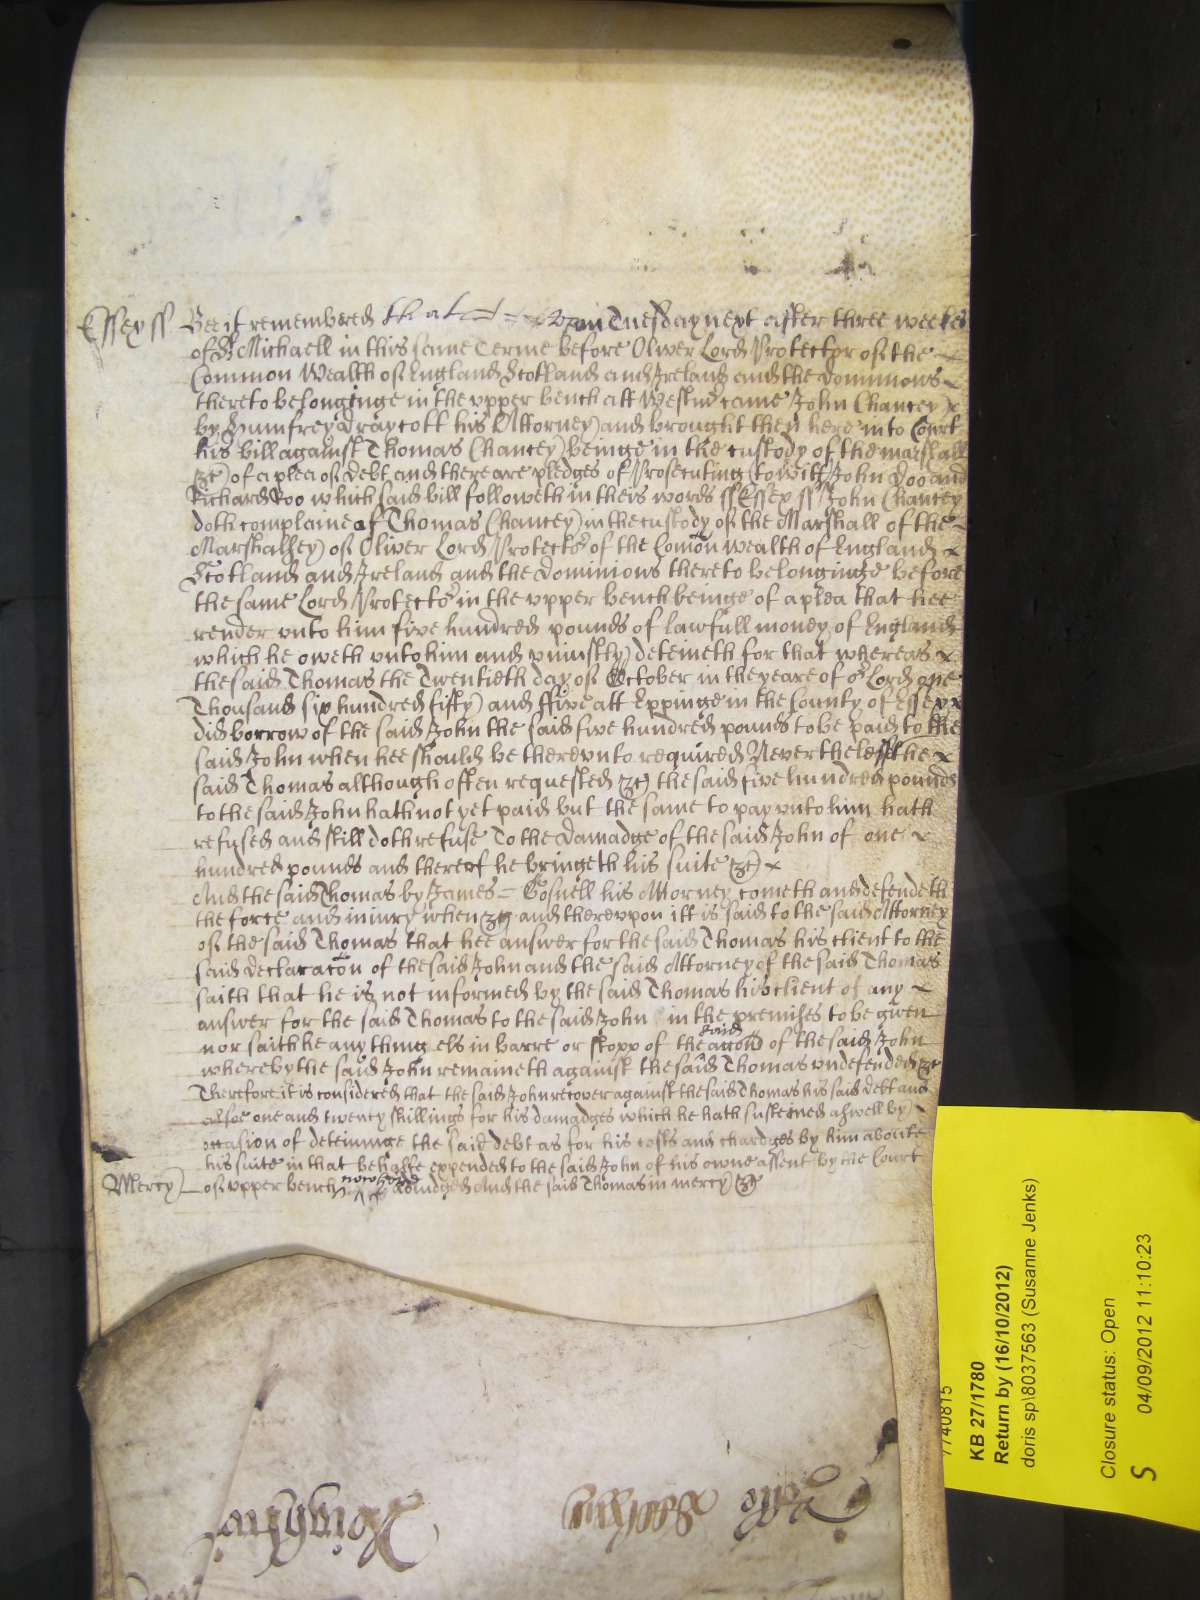 Essex ss Bee it remembred that upon Tuesday next after three weekes
of St Michaell in this same Terme before Oliver Lord Protector of the
Common Wealth of England Scotland and Ireland and the dominions
thereto belonginge in the upper bench att Westmr came John Chancey
by Humfrey Draycott his Attorney and brought then here into Court
his bill against Thomas Chancey beinge in the custody of the marshall
&c of a plea of debt and there are pledges of Prosecuting to witt John Doo and
Richard Roo which said bill followeth in theis words ss Essex ss John Chancey
doth complaine of Thomas Chancey in the custody of the Marshall of the
Marshalsey of Oliver Lord Protector of the Comon wealth of England
Scotland and Ireland and the dominions thereto belonginge before
the same Lord Protector in the upper bench beinge of a plea that hee
render unto him five hundred pounds of lawfull money of England
which he oweth unto him and uniustly deteineth for that whereas
the said Thomas the Twentieth day of October in the yeare of or Lord one
Thousand six hundred fifty and ffive att Eppinge in the County of Essex
did borrow of the said John the said five hundred pounds to be paid to the
said John when hee should be thereunto required Neverthelesse the
said Thomas although often requested &c the said five hundred pounds
to the said John hath not yet paid but the same to pay unto him hath
refused and still doth refuse To the damadge of the said John of one
hundred pounds and thereof he bringeth his suite &c
And the said Thomas by James Gosnell his Attorney cometh and defendeth
the force and iniury when &c and thereupon itt is said to the said Attorney
of the said Thomas that hee answer for the said Thomas his client to the
said declaracon of the said John and the said Attorney of the said Thomas
saith that he is not informed by the said Thomas his client of any
answer for the said Thomas to the said John in the premises to be given
nor saith he any thing els in barre or stopp of the said accon of the said John
whereby the said John remaineth against the said Thomas undefended &c
Therefore it is considered that the said John recover against the said Thomas his said debt and
alsoe one and twenty shillings for his damadges which he hath susteined aswell by
occasion of deteininge the said debt as for his costs and chardges by him aboute
his suite in that behalfe expended to the said John of his owne assent by the Court
Mercy of upper bench now here adiudged And the said Thomas in mercy &c
7740815
KB 27/1780
Return by (16/10/2012)
doris sp\8037563 (Susanne Jenks)
Closure status: Open
04/09/2012 11:10:23
S